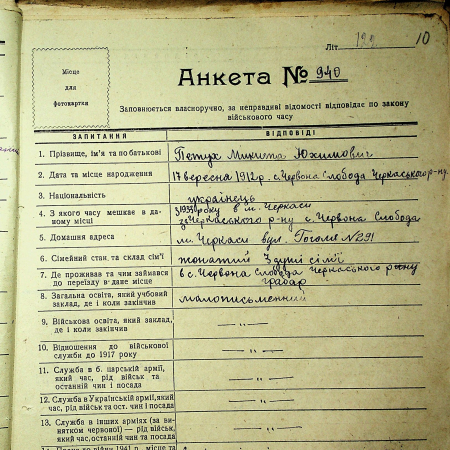 Літ. 122 10
Місце
для
фотокартки
Анкета № 940
Заповнюється власноручно, за неправдиві відомості відповідає по закону
військового часу
ЗАПИТАННЯ ВІДПОВІДІ
1. Прізвище, ім'я та по батькові Петух Микита Юхимович
2. Дата та місце народження 17 вересня 1912 р. с. Червона Слобода Черкаського р-ну.
3. Національність українець
4. З якого часу мешкає в да- року в м. Черкаси
ному місці Черкаського р-ну с. Червона Слобода
5. Домашня адреса м. Черкаси вул. Гоголя № 291
6. Сімейний стан, та склад сім'ї жонатий 3 душі сім'ї
7. Де проживав та чим займався в с. Червона Слобода Черкаського р-ну
до переїзду в дане місце грабар
8. Загальна освіта, який учбовий малописьменний
заклад, де і коли закінчив
9. Військова освіта, який заклад, — „ —
де і коли закінчив
10. Відношення до військової — „ —
служби до 1917 року
11. Служба в б. царській армії, — „ —
який час, рід військ та
останній чин і посада
12. Служба в Українській армії, який — „ —
час, рід військ та ост. чин і посада
13. Служба в інших арміях (за ви- — „ —
нятком червоної) — рід військ,
який час, останній чин та посада